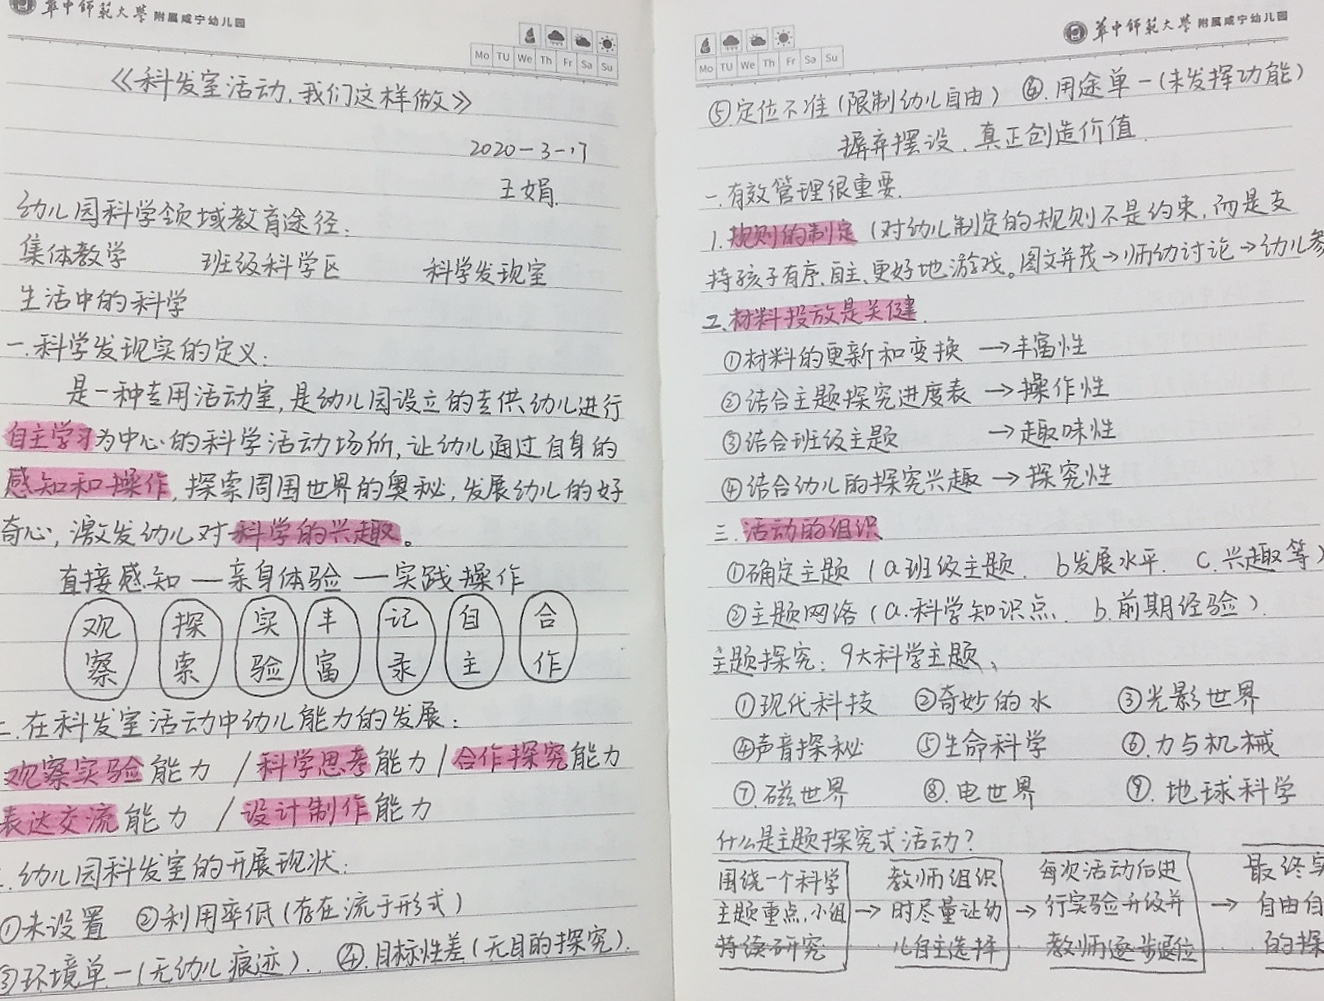 華中師範大學 附属咸宁幼儿园
Mo TU We Th Fr Sa Su
《科发室活动,我们这样做》
2020-3-17
王娟.
幼儿园科学领域教育途径.
集体教学 班级科学区 科学发现室
生活中的科学
一.科学发现实的定义.
是一种专用活动室,是幼儿园设立的专供幼儿进行
自主学习为中心的科学活动场所,让幼儿通过自身的
感知和操作,探索周围世界的奥秘,发展幼儿的好
奇心,激发幼儿对科学的兴趣。
直接感知—亲身体验—实践操作
观察 探索 实验 丰富 记录 自主 合作
二.在科发室活动中幼儿能力的发展:
观察实验能力/科学思考能力/合作探究能力
表达交流能力/设计制作能力
.幼儿园科发室的开展现状:
①未设置 ②利用率低(存在流于形式)
③环境单一(无幼儿痕迹). ④.目标性差(无目的探究).
華中師範大學 附属咸宁幼儿园
Mo TU We Th Fr Sa Su
⑤定位不准(限制幼儿自由) ⑥.用途单一(未发挥功能)
摒弃摆设.真正创造价值.
一.有效管理很重要.
1.规则的制定(对幼儿制定的规则不是约束,而是支
持孩子有序、自主、更好地游戏。图文并茂→师幼讨论→幼儿参
二.材料投放是关键.
①材料的更新和变换→丰富性
②结合主题探究进度表→操作性
③结合班级主题→趣味性
④结合幼儿的探究兴趣→探究性
三.活动的组织
①确定主题(a.班级主题. b发展水平. c.兴趣等)
②主题网络(a.科学知识点. b.前期经验).
主题探究:9大科学主题、
①现代科技 ②奇妙的水 ③光影世界
④声音探秘 ⑤生命科学 ⑥.力与机械
⑦.磁世界 ⑧.电世界 ⑨.地球科学
什么是主题探究式活动?
围绕一个科学 教师组织 每次活动后进 最终实
主题重点,小组→时尽量让幼→行实验升级并→自由自
持续研究 儿自主选择 教师逐步退位 的探